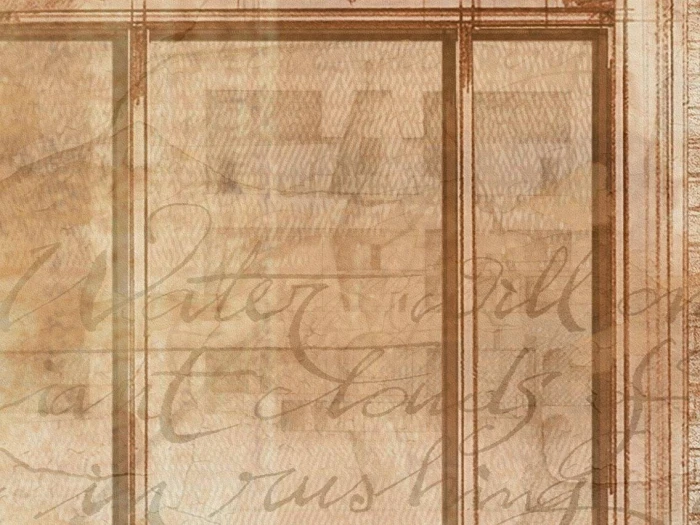 Water will on
iant clouds of
in rushing